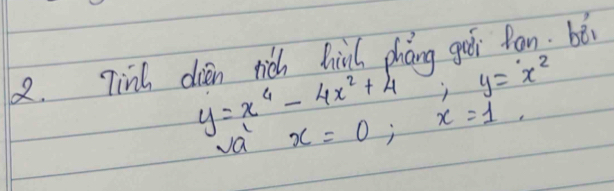 2. Tính diện tích hình phẳng giới hạn bởi
y = x⁴ - 4x² + 4 ; y = x²
và x = 0 ; x = 1.